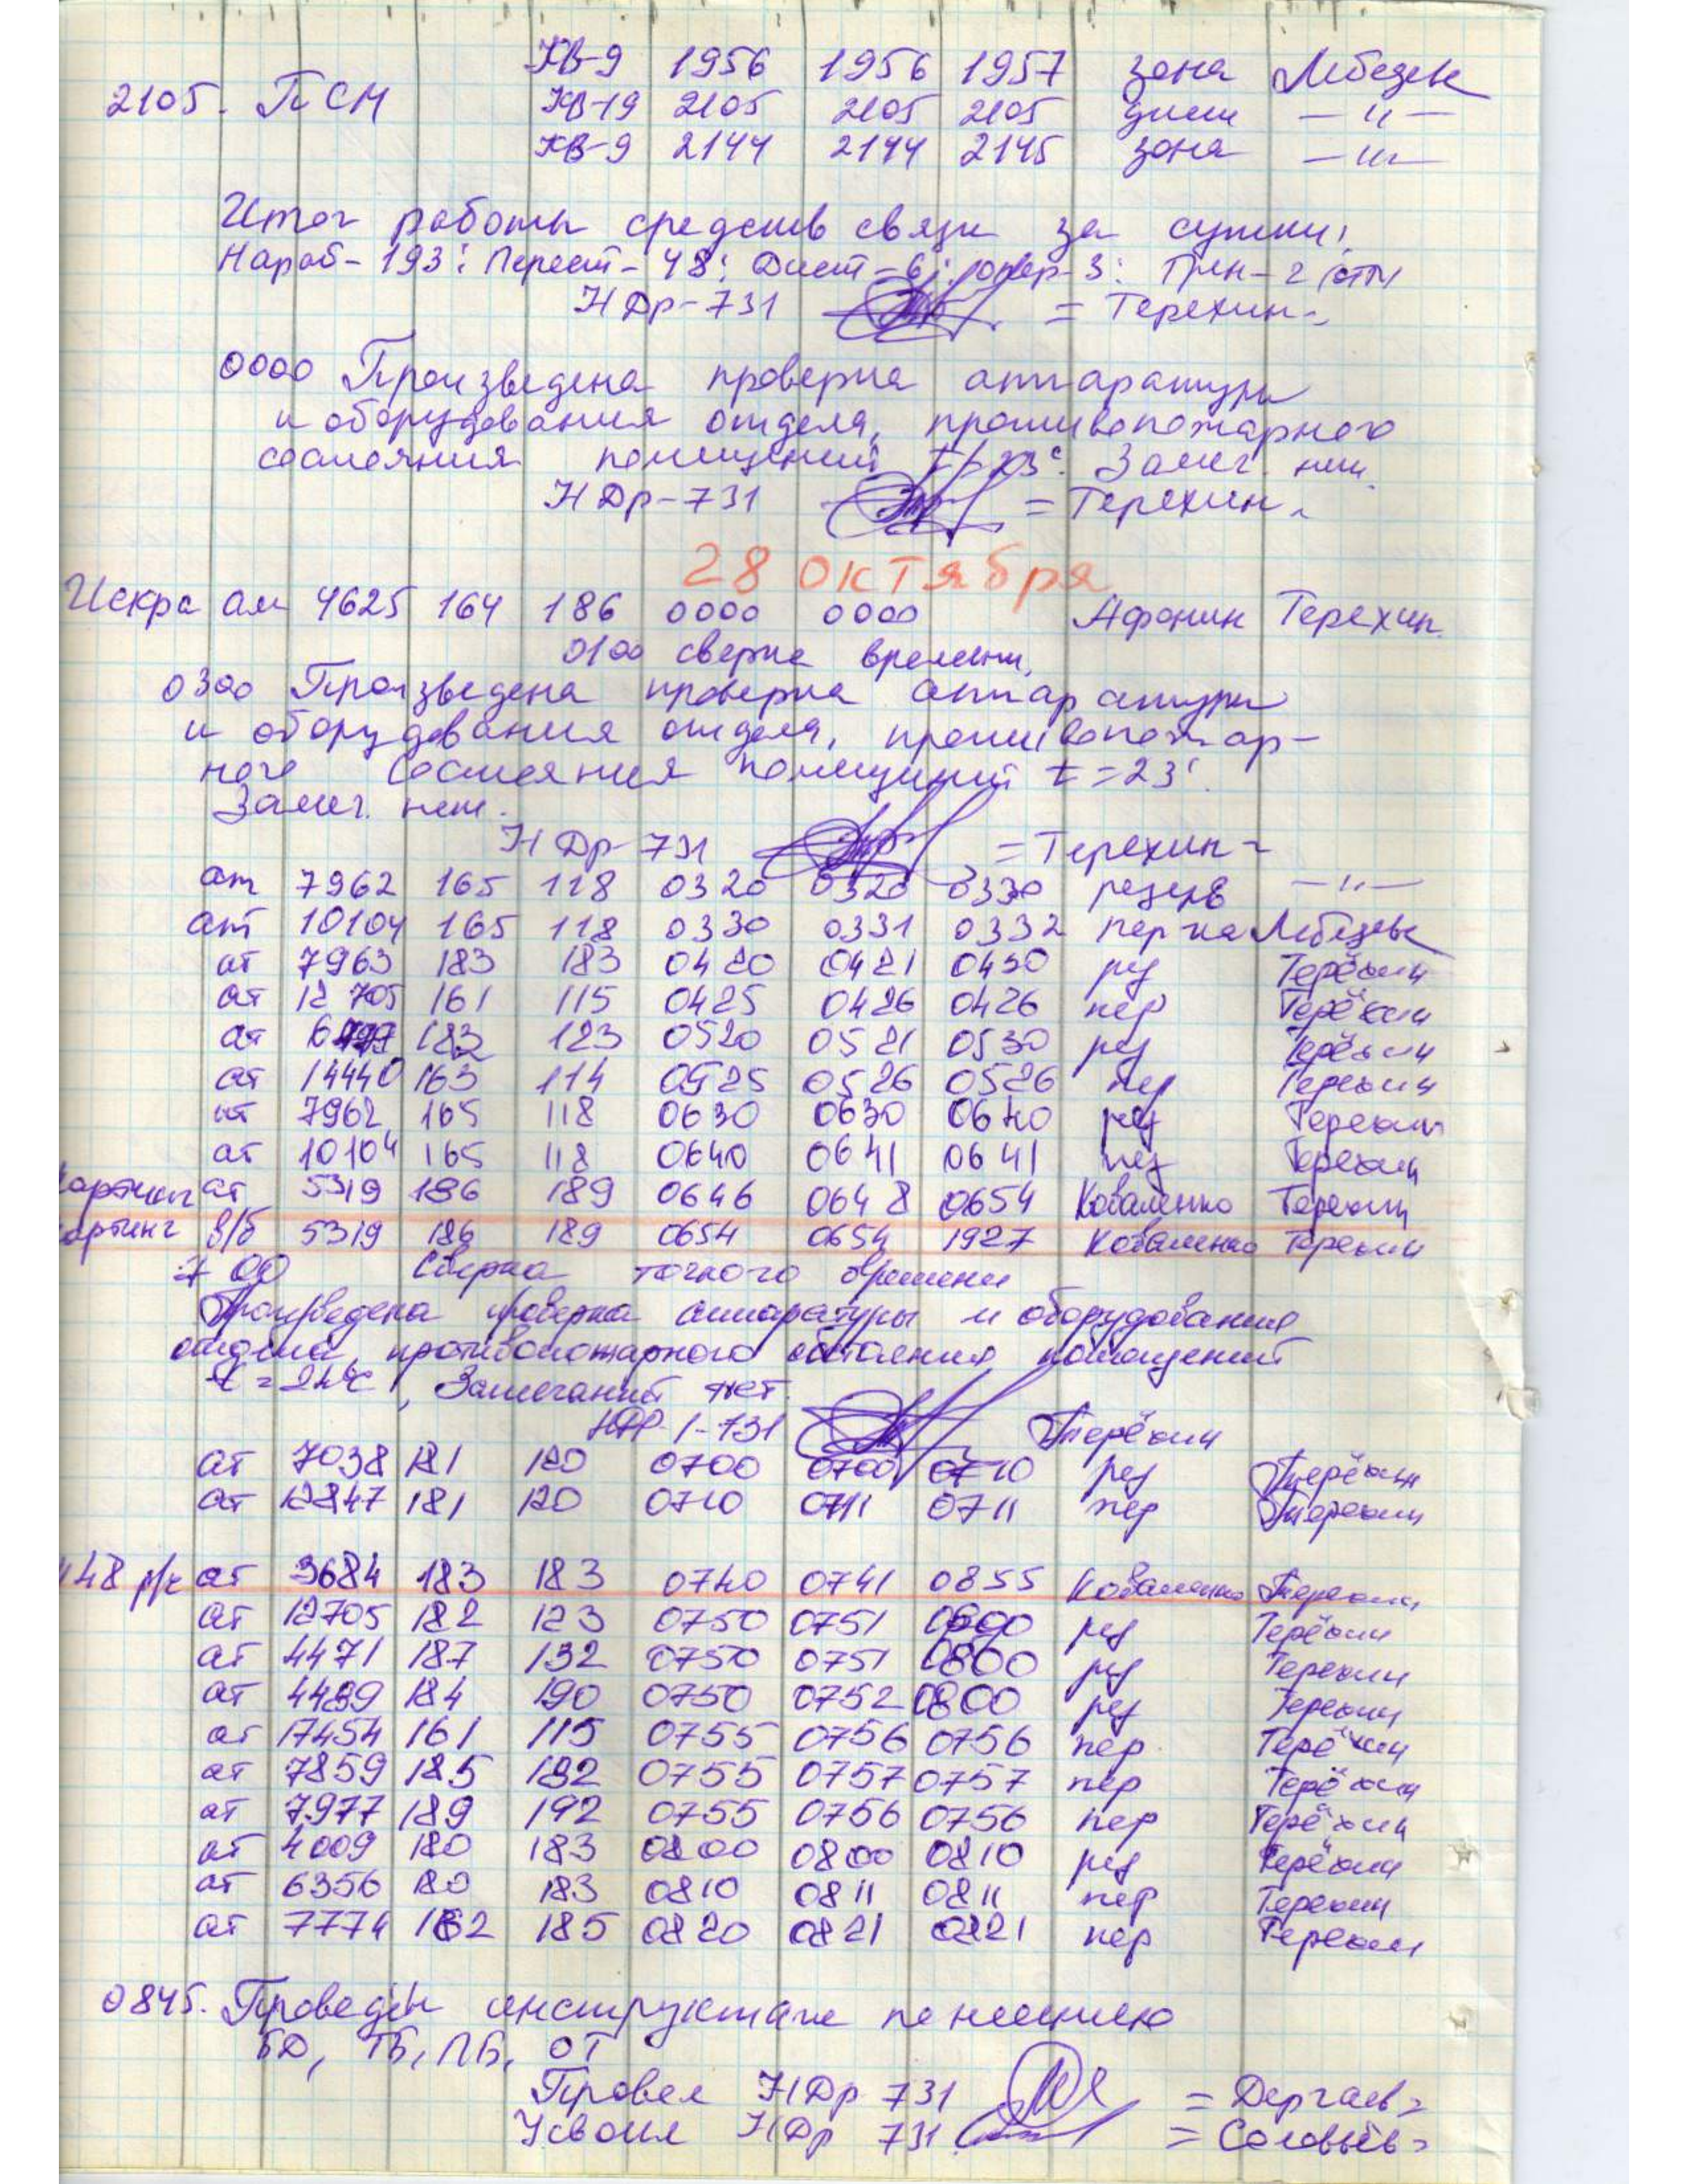 КВ-9 1956 1956 1957 зона Лебедев
2105. ПСМ КВ-19 2105 2105 2105 —"—
КВ-9 2144 2144 2145 зона —"—
Итог работы средств связи за сутки:
Нараб-193: Перест-48: Дист-6: 3: 2
НДр-731 =Терехин=
0000 Произведена проверка аппаратуры
и оборудования отдела, противопожарного
состояния помещений t=23°. Замеч. нет.
НДр-731 =Терехин=
28 октября
Искра ам 4625 164 186 0000 0000 Афонин Терехин
0100 сверка времени.
0300 Произведена проверка аппаратуры
и оборудования отдела, противопожар-
ного состояния помещений t=23°.
Замеч. нет.
НДр-731 =Терехин=
ат 7962 165 118 0320 0320 0330 резерв —"—
ат 10104 165 118 0330 0331 0332 пер-ка Лебедев
ат 7963 183 183 0420 0421 0430 рез Терёхин
ат 12705 161 115 0425 0426 0426 пер Терёхин
ат 183 123 0520 0521 0530 рез Терёхин
ат 14440 163 114 0525 0526 0526 пер Терехин
ат 7962 165 118 0630 0630 0640 рез Терехин
ат 10104 165 118 0640 0641 0641 Терехин
ат 5319 186 189 0646 0648 0654 Коваленко Терехин
артинг в/б 5319 186 189 0654 0654 1927 Коваленко Терехин
7 00 Сверка точного времени
Произведена проверка аппаратуры и оборудования
отдела, противопожарного состояния помещений
t=24°С, Замечаний нет.
НДР-1-731 Терёхин
ат 7038 181 120 0700 0700 0710 рез Терёхин
ат 12847 181 120 0710 0711 0711 пер Терехин
148 р/с ат 3684 183 183 0740 0741 0855 Коваленко Терехин
ат 12705 182 123 0750 0751 0800 рез Терёхин
ат 4471 187 132 0750 0751 0800 рез Терехин
ат 4489 184 190 0750 0752 0800 рез Терехин
ат 17454 161 115 0755 0756 0756 пер Терёхин
ат 7859 185 192 0755 0757 0757 пер Терёхин
ат 7977 189 192 0755 0756 0756 пер Терёхин
ат 4009 180 183 0800 0800 0810 рез Терёхин
ат 6356 180 183 0810 0811 0811 пер Терехин
ат 7774 182 185 0820 0821 0821 пер Терехин
0845. Проведён инструктаж по несению
БД, ТБ, ПБ, ОТ
Провел НДр 731 =Дергаев=
Усвоил НДр 731 =Соловьёв=